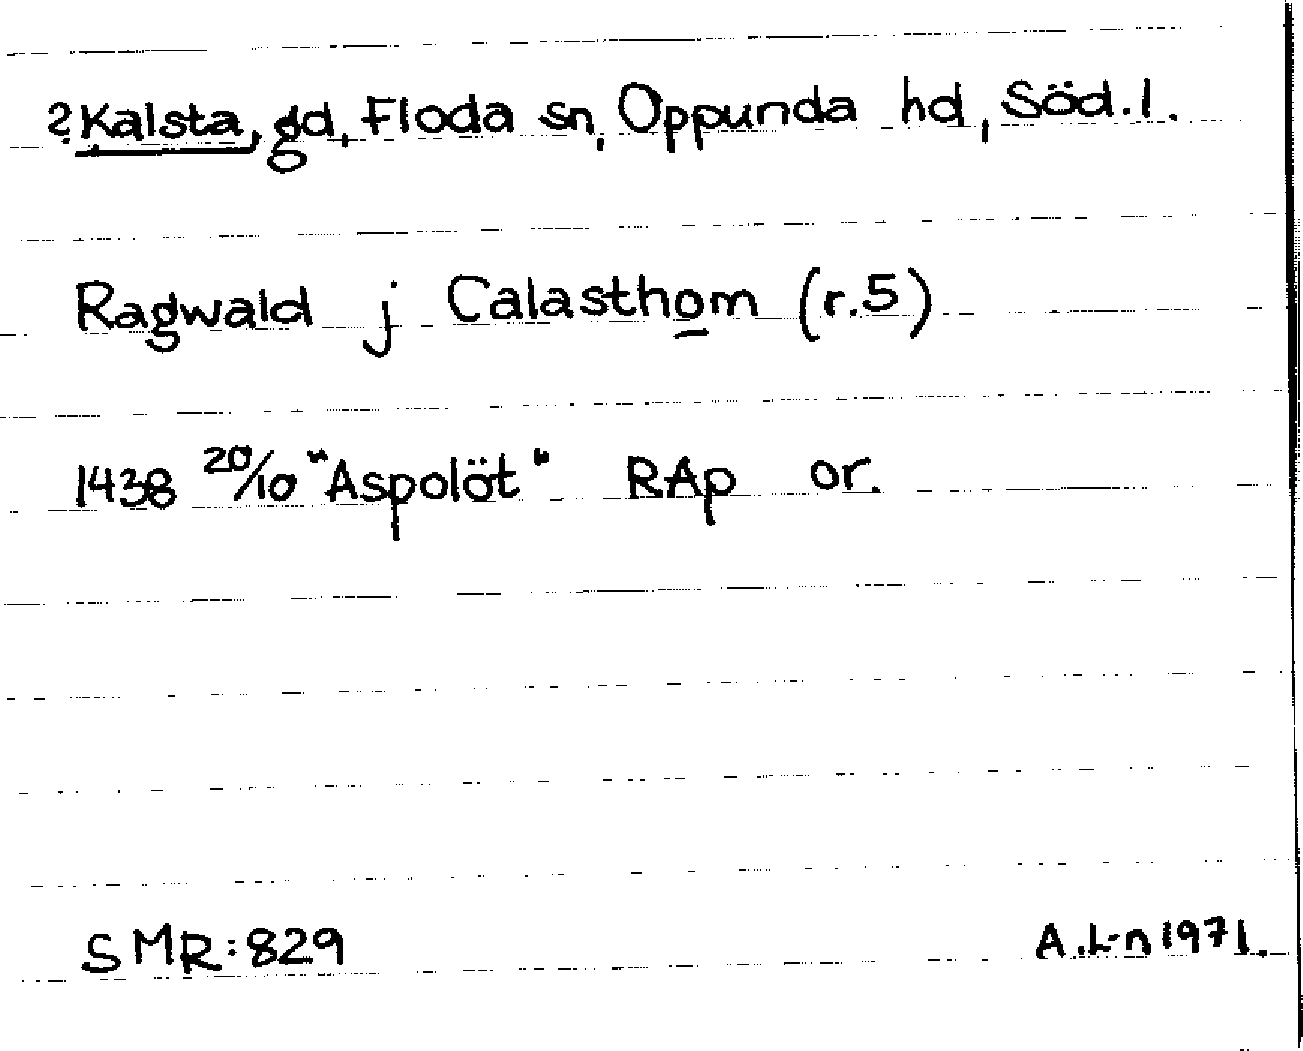 ?Kalsta, gd, Floda sn, Oppunda hd, Söd.l.
Ragwald j Calasthom (r.5)
1438 20/10 "Aspolöt" RAp or.
SMR:829 A.L-n 1971.